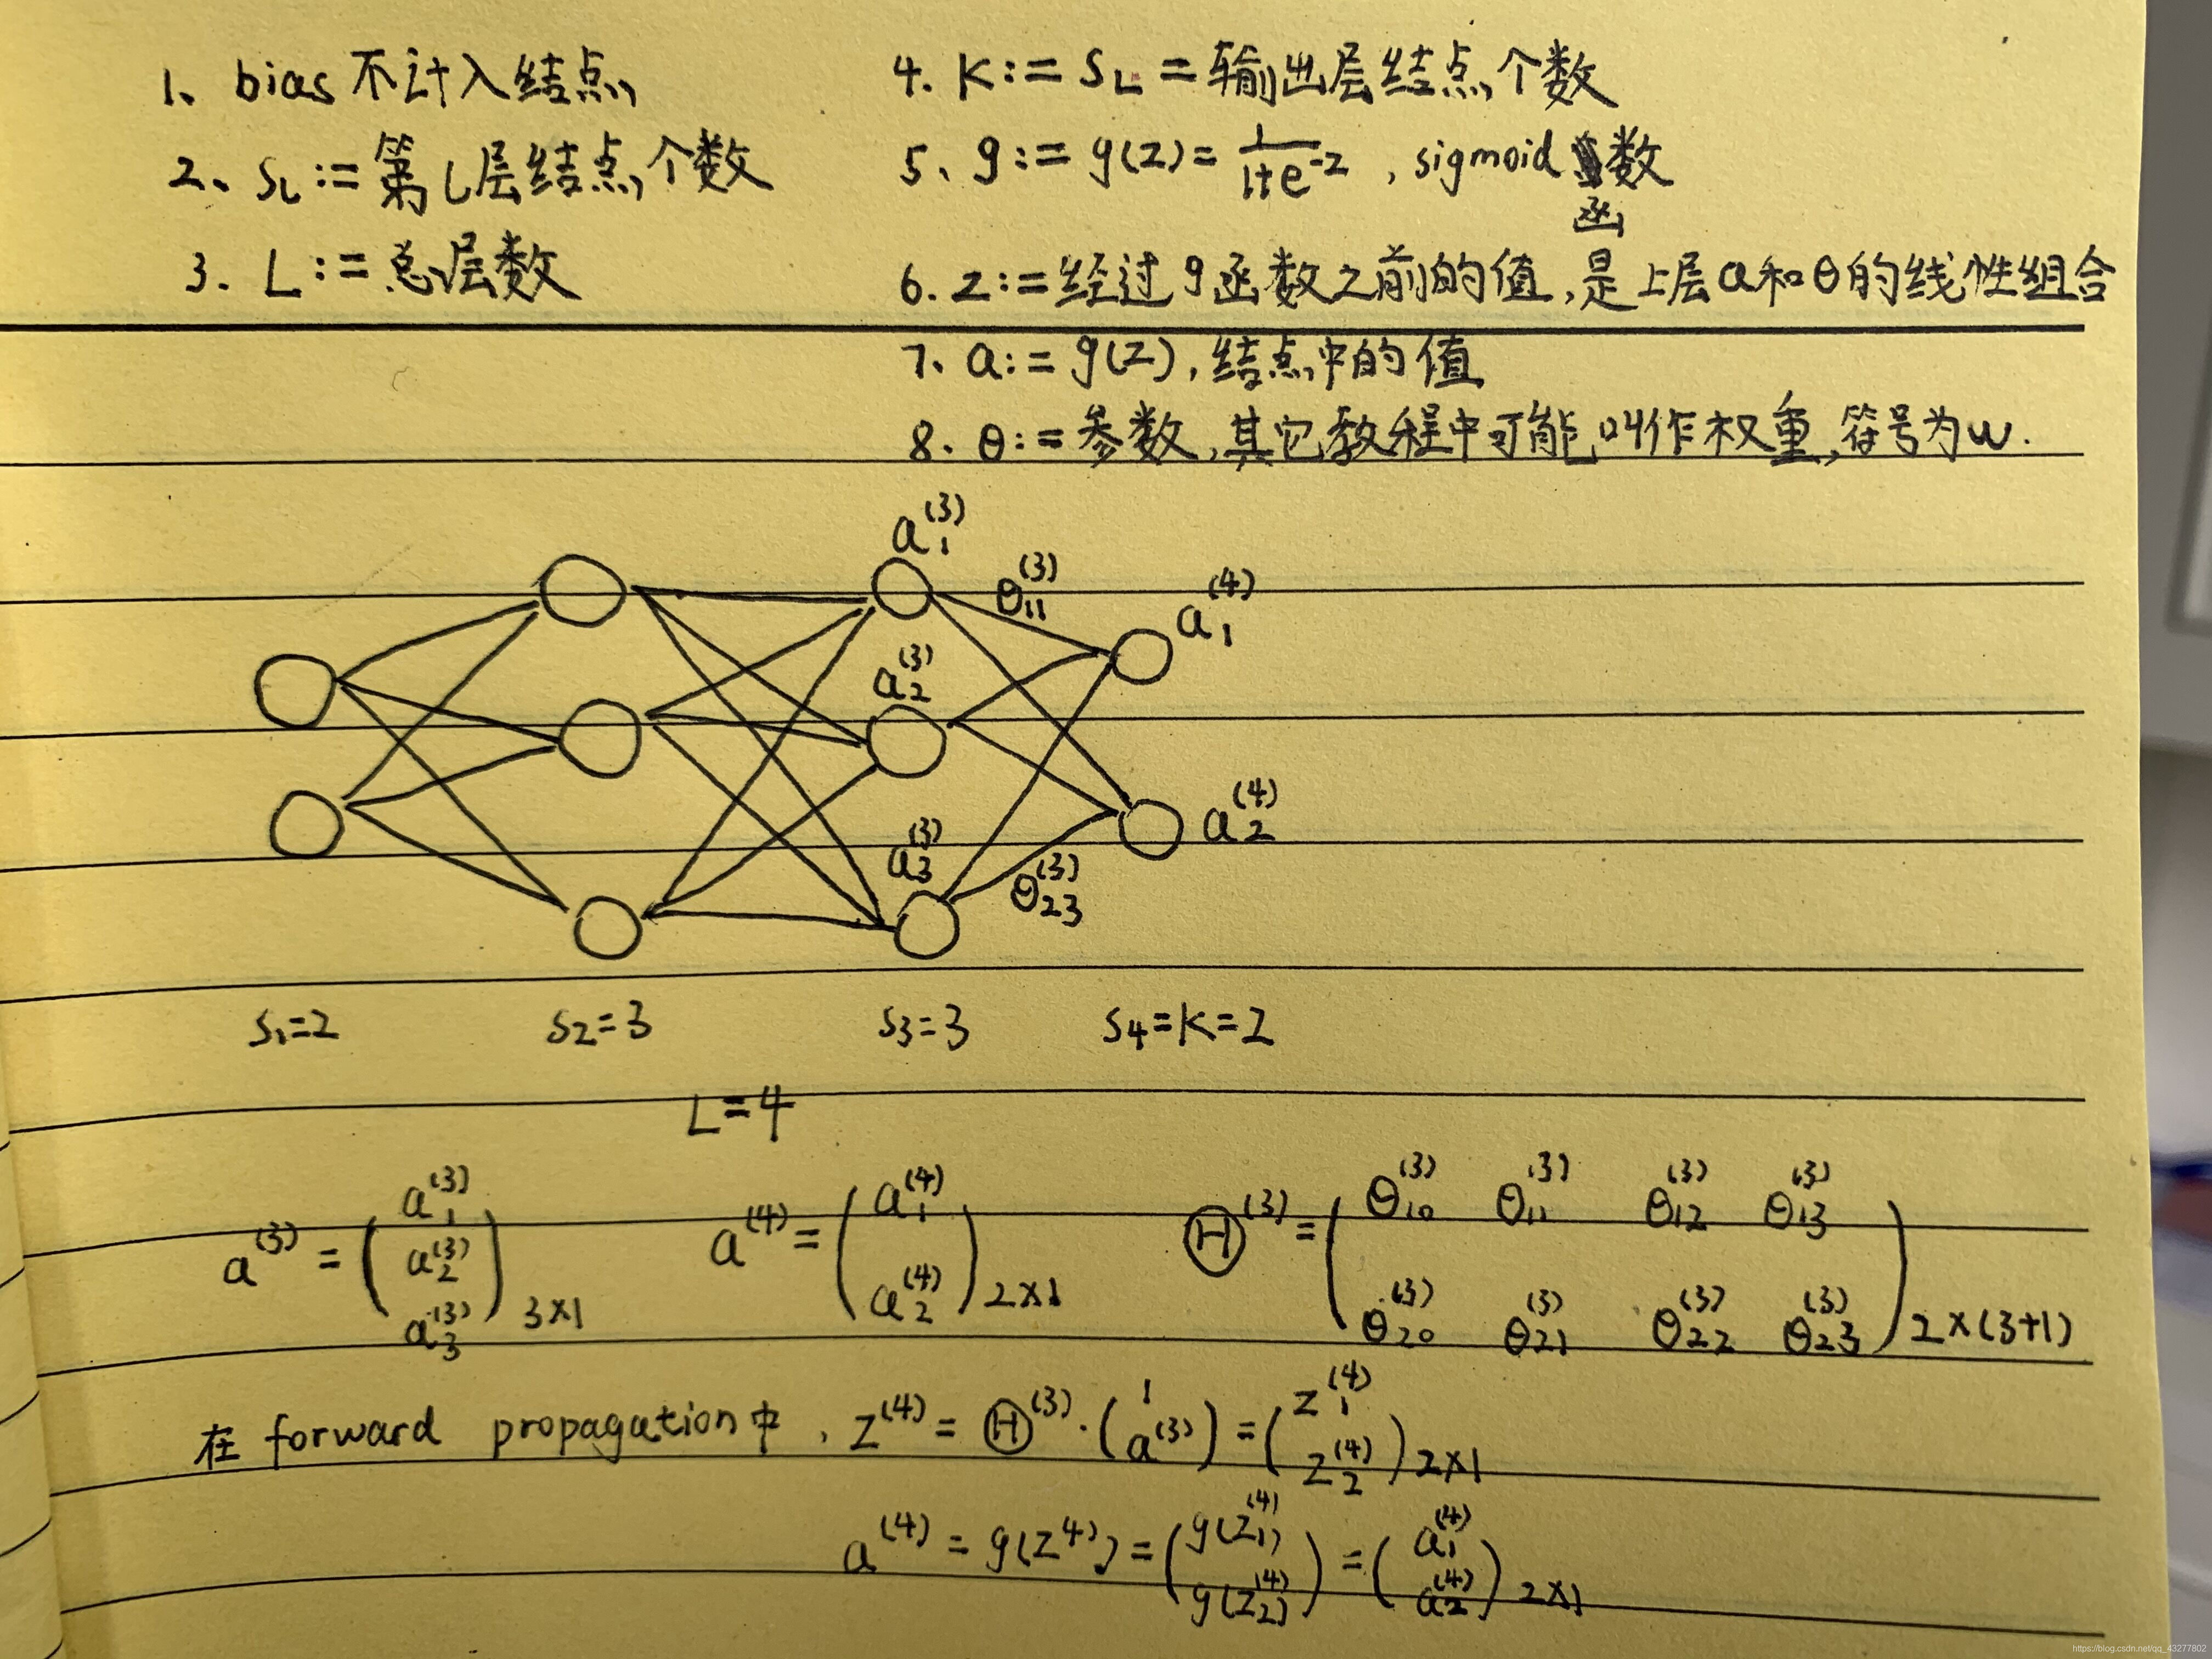 1、bias 不计入结点
2、s_l := 第l层结点个数
3. L := 总层数
4. K := s_L = 输出层结点个数
5、g := g(z) = 1/(1+e^-z) , sigmoid 函数
6. z := 经过g函数之前的值,是上层a和θ的线性组合
7、a := g(z),结点中的值
8、θ := 参数,其它教程中可能叫作权重,符号为w.
a_1^(3)
θ_11^(3)
a_1^(4)
a_2^(3)
a_2^(4)
a_3^(3)
θ_23^(3)
s_1=2 s_2=3 s_3=3 s_4=K=2
L=4
a^(3) = (a_1^(3) a_2^(3) a_3^(3))_3×1 a^(4) = (a_1^(4) a_2^(4))_2×1 Θ^(3) = (θ_10^(3) θ_11^(3) θ_12^(3) θ_13^(3) θ_20^(3) θ_21^(3) θ_22^(3) θ_23^(3))_2×(3+1)
在 forward propagation中, z^(4) = Θ^(3) · (1 a^(3)) = (z_1^(4) z_2^(4))_2×1
a^(4) = g(z^4) = (g(z_1^(4)) g(z_2^(4))) = (a_1^(4) a_2^(4))_2×1
https://blog.csdn.net/qq_43277802